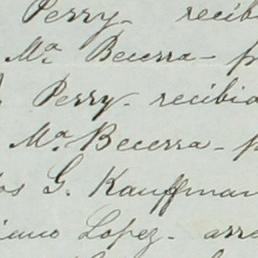 Perry- recib
Mª Becerra- p
Perry- recibio
Mª Becerra- p
os G. Kauffman
iano Lopez- arre